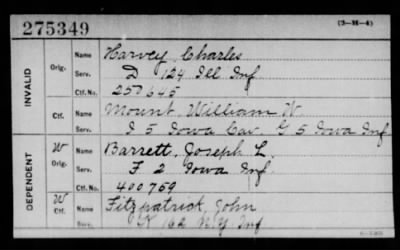 275349 (3-H-4)
INVALID
Orig. Name Harvey, Charles
Serv. D 124 Ill Inf
Ctf. No. 250645
Ctf. Name Mount, William W.
Serv. I 5 Iowa Cav. G 5 Iowa Inf
DEPENDENT
W Orig. Name Barrett, Joseph L
Serv. F 2 Iowa Inf.
Ctf. No. 400759
W Ctf. Name Fitzpatrick, John
Serv. K 162 N.Y. Inf